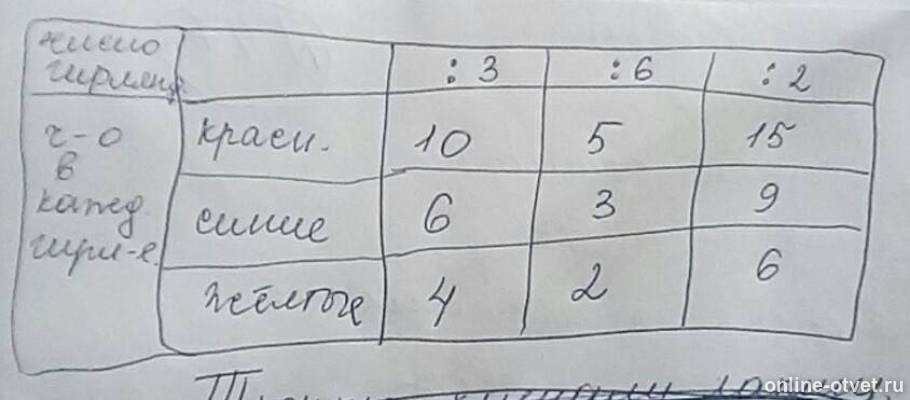 число
гирлянд : 3 : 6 : 2
ч-о красн. 10 5 15
в
кажд. синие 6 3 9
гирл-е. жёлтые 4 2 6
online-otvet.ru